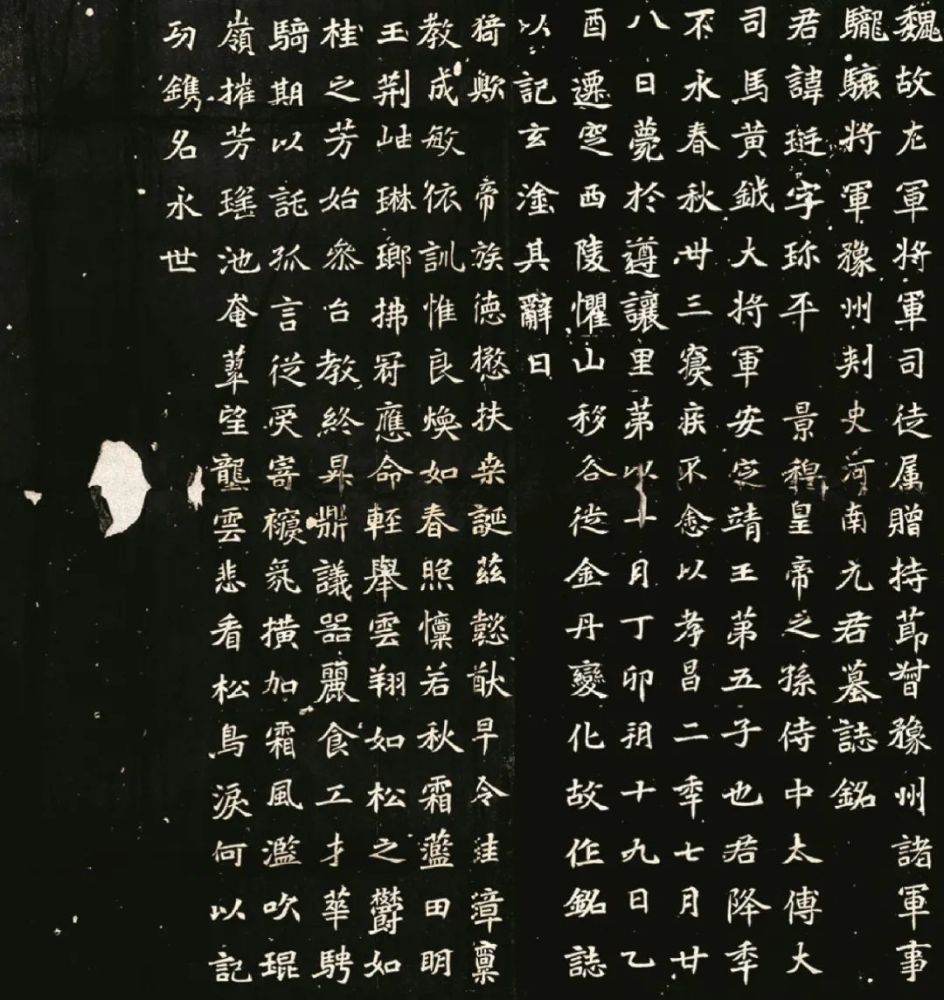 魏故左軍將軍司徒属贈持節督豫州諸軍事
龍驤將軍豫州刾史河南元君墓誌銘
君諱珽字珎平 景穆皇帝之孫侍中太傅大
司馬黃鉞大將軍安定靖王第五子也君降秊
不永春秋卅三寢疾不愈以孝昌二秊七月廿
八日薨於遵讓里第以十月丁卯朔十九日乙
酉遷窆西陵懼山移谷徙金丹變化故作銘誌
以記玄塗其辭曰
猗歟 帝族德懋扶桒誕茲懿猷早令珪璋稟
教成敏依訓惟良煥如春照懍若秋霜藍田明
玉荊岫琳瑯拂冠應命輕舉雲翔如松之鬱如
桂之芳始叅台教終昇鼎議器麗食工才華騁
騎期以託孤言從受寄氛橫加霜風濫吹琨
嶺摧芳瑤池奄翠望壟雲悲看松鳥淚何以記
功鐫名永世